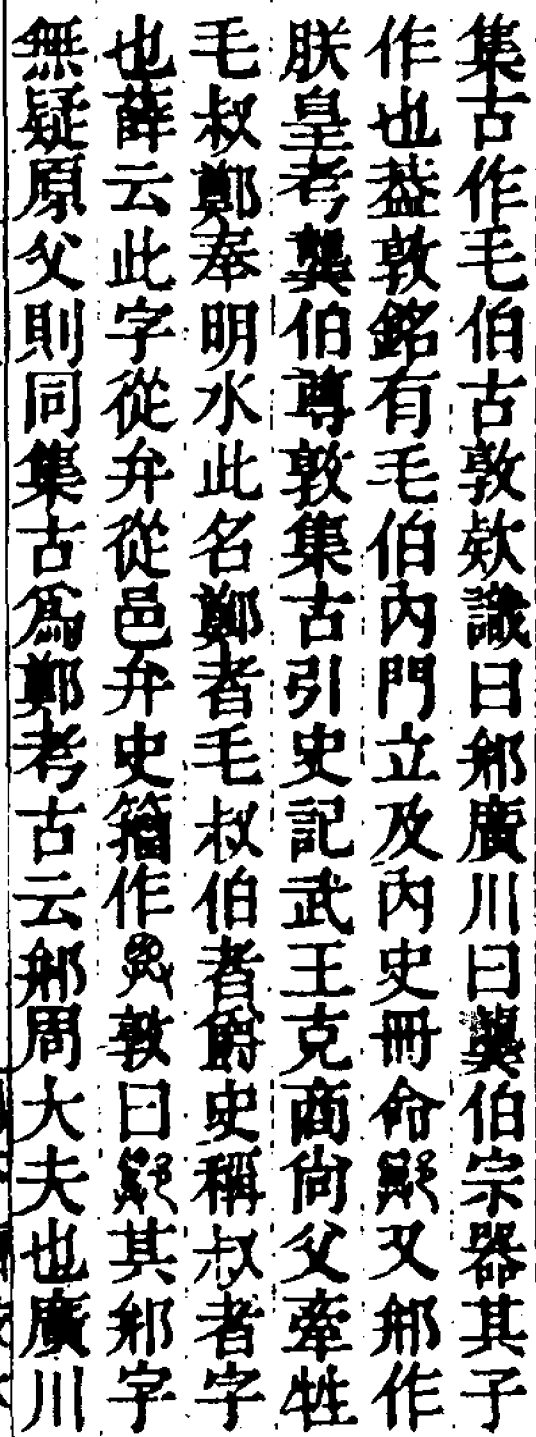 集古作毛伯古敦欵識曰䢵廣川曰龔伯宗器其子
作也葢敦銘有毛伯內門立及內史冊命又䢵作
朕皇考龔伯尊敦集古引史記武王克商尙父牽牲
毛叔鄭奉明水此名鄭者毛叔伯者爵史稱叔者字
也薛云此字從弁從邑弁史籀作敦曰其䢵字
無疑原父則同集古爲鄭考古云䢵周大夫也廣川